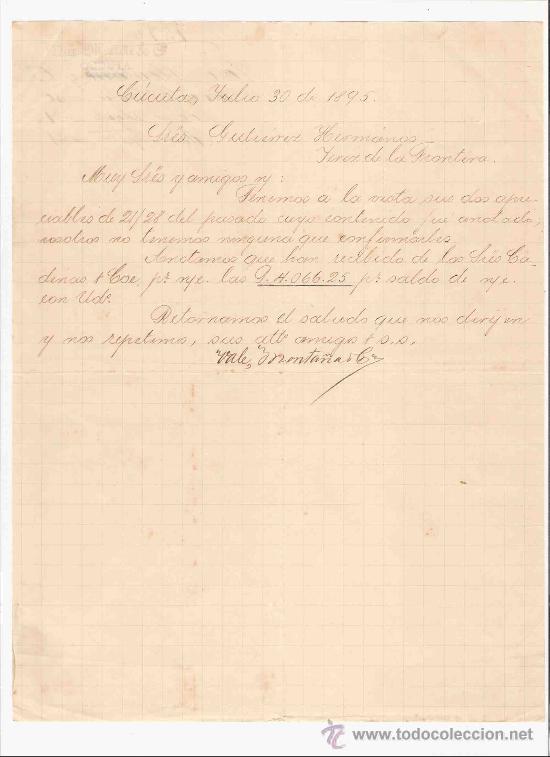 Cúcuta, Julio 30 de 1895.
Srês Gutierrez Hermános
Jerez de la Frontera.
Muy Srês y amigos n/:
Tenemos a la vista sus dos apre-
ciables de 21/28 del pasado cuyo contenido fué anotado,
nosotros no tenemos ninguna que confirmarles.
Anotamos que han recibido de los Srês Ca-
denas & Coe, pr. n/c. las P. H.066.25 pr. saldo de n/c.
con Uds.
Retornamos el saludo que nos dirijen
y nos repetimos, sus attos amigos & s.s.
Vale, Montaña & Ca
www.todocoleccion.net